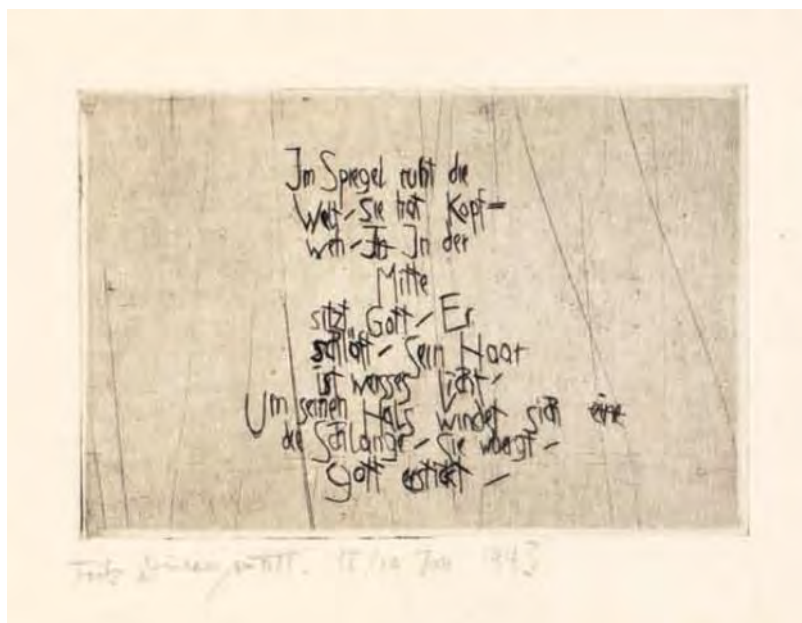 Im Spiegel ruht die
Welt – Sie hat Kopf=
weh – In der
Mitte
sitzt Gott – Er
schläft – Sein Haar
ist weisses Licht –
Um seinen Hals windet sich eine
die Schlange – Sie würgt –
Gott erstickt –
Fritz Dürrenmatt. 1943